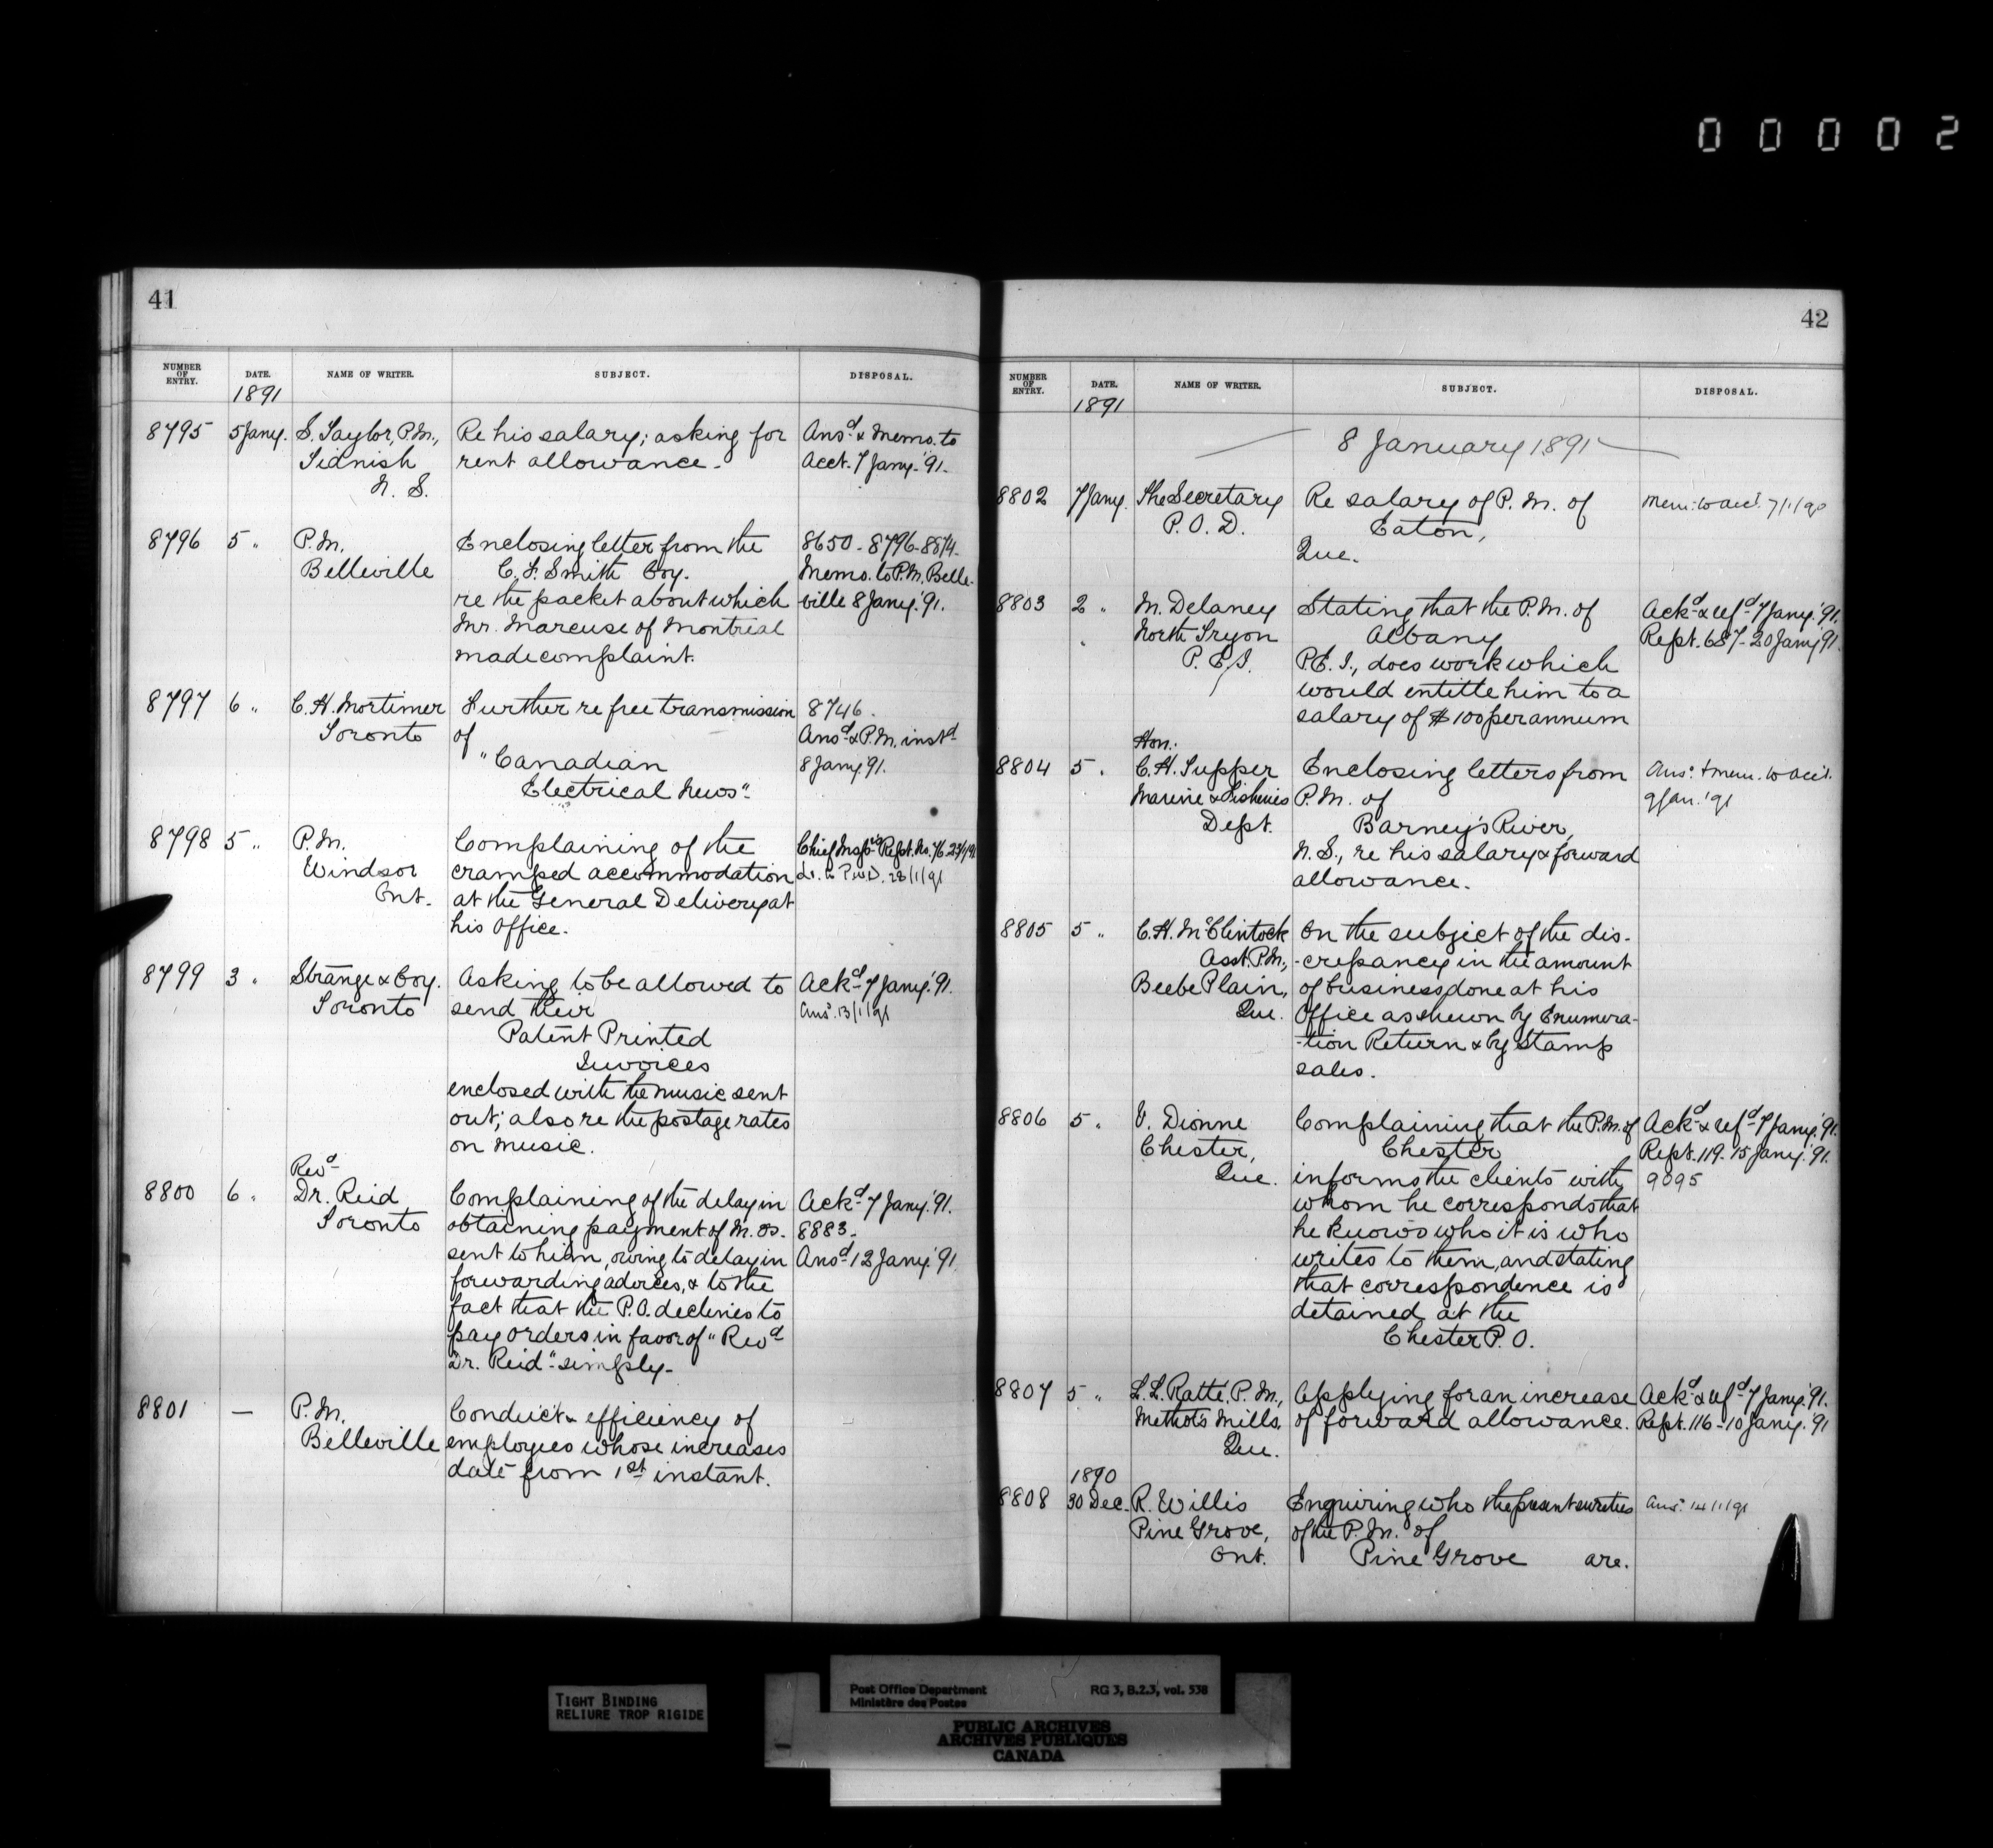 00002
41
NUMBER OF ENTRY. DATE. NAME OF WRITER. SUBJECT. DISPOSAL.
1891
8795 5 Jany. S. Taylor, P.M., Re his salary; asking for Ansd. & Memo. to
Tidnish rent allowance. Acct. 7 Jany. '91.
N. S.
8796 5 " P.M. Enclosing letter from the 8650 - 8796 - 8874.
Belleville C. F. Smith Coy. Memo. to P.M. Belle-
re the packet about which ville 8 Jany. '91.
Mr. Marcuse of Montreal
made complaint.
8797 6 " C. H. Mortimer Further re free transmission 8746.
Toronto of Ansd. & P.M. instd.
"Canadian 8 Jany 91.
Electrical News".
8798 5 " P.M. Complaining of the Chief Inspr's Rept. No. 76 23/1/91
Windsor cramped accommodation Lr. to P.W.D. 28/1/91
Ont. at the General Delivery at
his Office.
8799 3 " Strange & Coy. Asking to be allowed to Ackd. 7 Jany. '91.
Toronto send their Ansd. 13/1/91
Patent Printed
Invoices
enclosed with the music sent
out; also re the postage rates
on music.
Revd.
8800 6 " Dr. Reid Complaining of the delay in Ackd. 7 Jany. '91.
Toronto obtaining payment of M. Os. 8883.
sent to him, owing to delay in Ansd. 12 Jany. '91.
forwarding advices, & to the
fact that the P.O. declines to
pay orders in favor of "Revd.
Dr. Reid" simply.
8801 — P.M. Conduct & efficiency of
Belleville employees whose increases
date from 1st instant.
42
NUMBER OF ENTRY. DATE. NAME OF WRITER. SUBJECT. DISPOSAL.
1891
8 January 1891
8802 7 Jany. The Secretary Re salary of P. M. of Mem: to acct. 7/1/90
P. O. D. Eaton,
Que.
8803 2 " M. Delaney Stating that the P.M. of Ackd. & refd. 7 Jany. '91.
" North Tryon Albany Rept. 687 - 20 Jany '91.
P. E. I. P.E. I., does work which
would entitle him to a
salary of $100 per annum
Hon.
8804 5 " C. H. Tupper Enclosing letters from Ansd. & mem. to acct.
Marine & Fisheries P.M. of 9 Jan. '91
Dept. Barney's River,
N. S., re his salary & forward
allowance.
8805 5 " C. H. McClintock On the subject of the dis-
Asst. P.M., -crepancy in the amount
Beebe Plain, of business done at his
Que. Office as shewn by Enumera-
-tion Return & by Stamp
sales.
8806 5 " V. Dionne Complaining that the P.M. of Ackd. & refd. 7 Jany. '91.
Chester, Chester Rept. 119. 15 Jany. '91.
Que. informs the clients with 9095
whom he corresponds that
he knows who it is who
writes to them, and stating
that correspondence is
detained at the
Chester P. O.
8807 5 " L. L. Ratté, P. M., Applying for an increase Ackd. & refd. 7 Jany. '91.
Methots Mills, of forward allowance. Rept. 116 - 10 Jany. '91
Que.
1890
8808 30 Dec. R. Willis Enquiring who the present sureties Ansd. 14/1/91
Pine Grove, of the P. M. of
Ont. Pine Grove are.
TIGHT BINDING
RELIURE TROP RIGIDE
Post Office Department RG 3, B.2.3, vol. 538
Ministère des Postes
PUBLIC ARCHIVES
ARCHIVES PUBLIQUES
CANADA